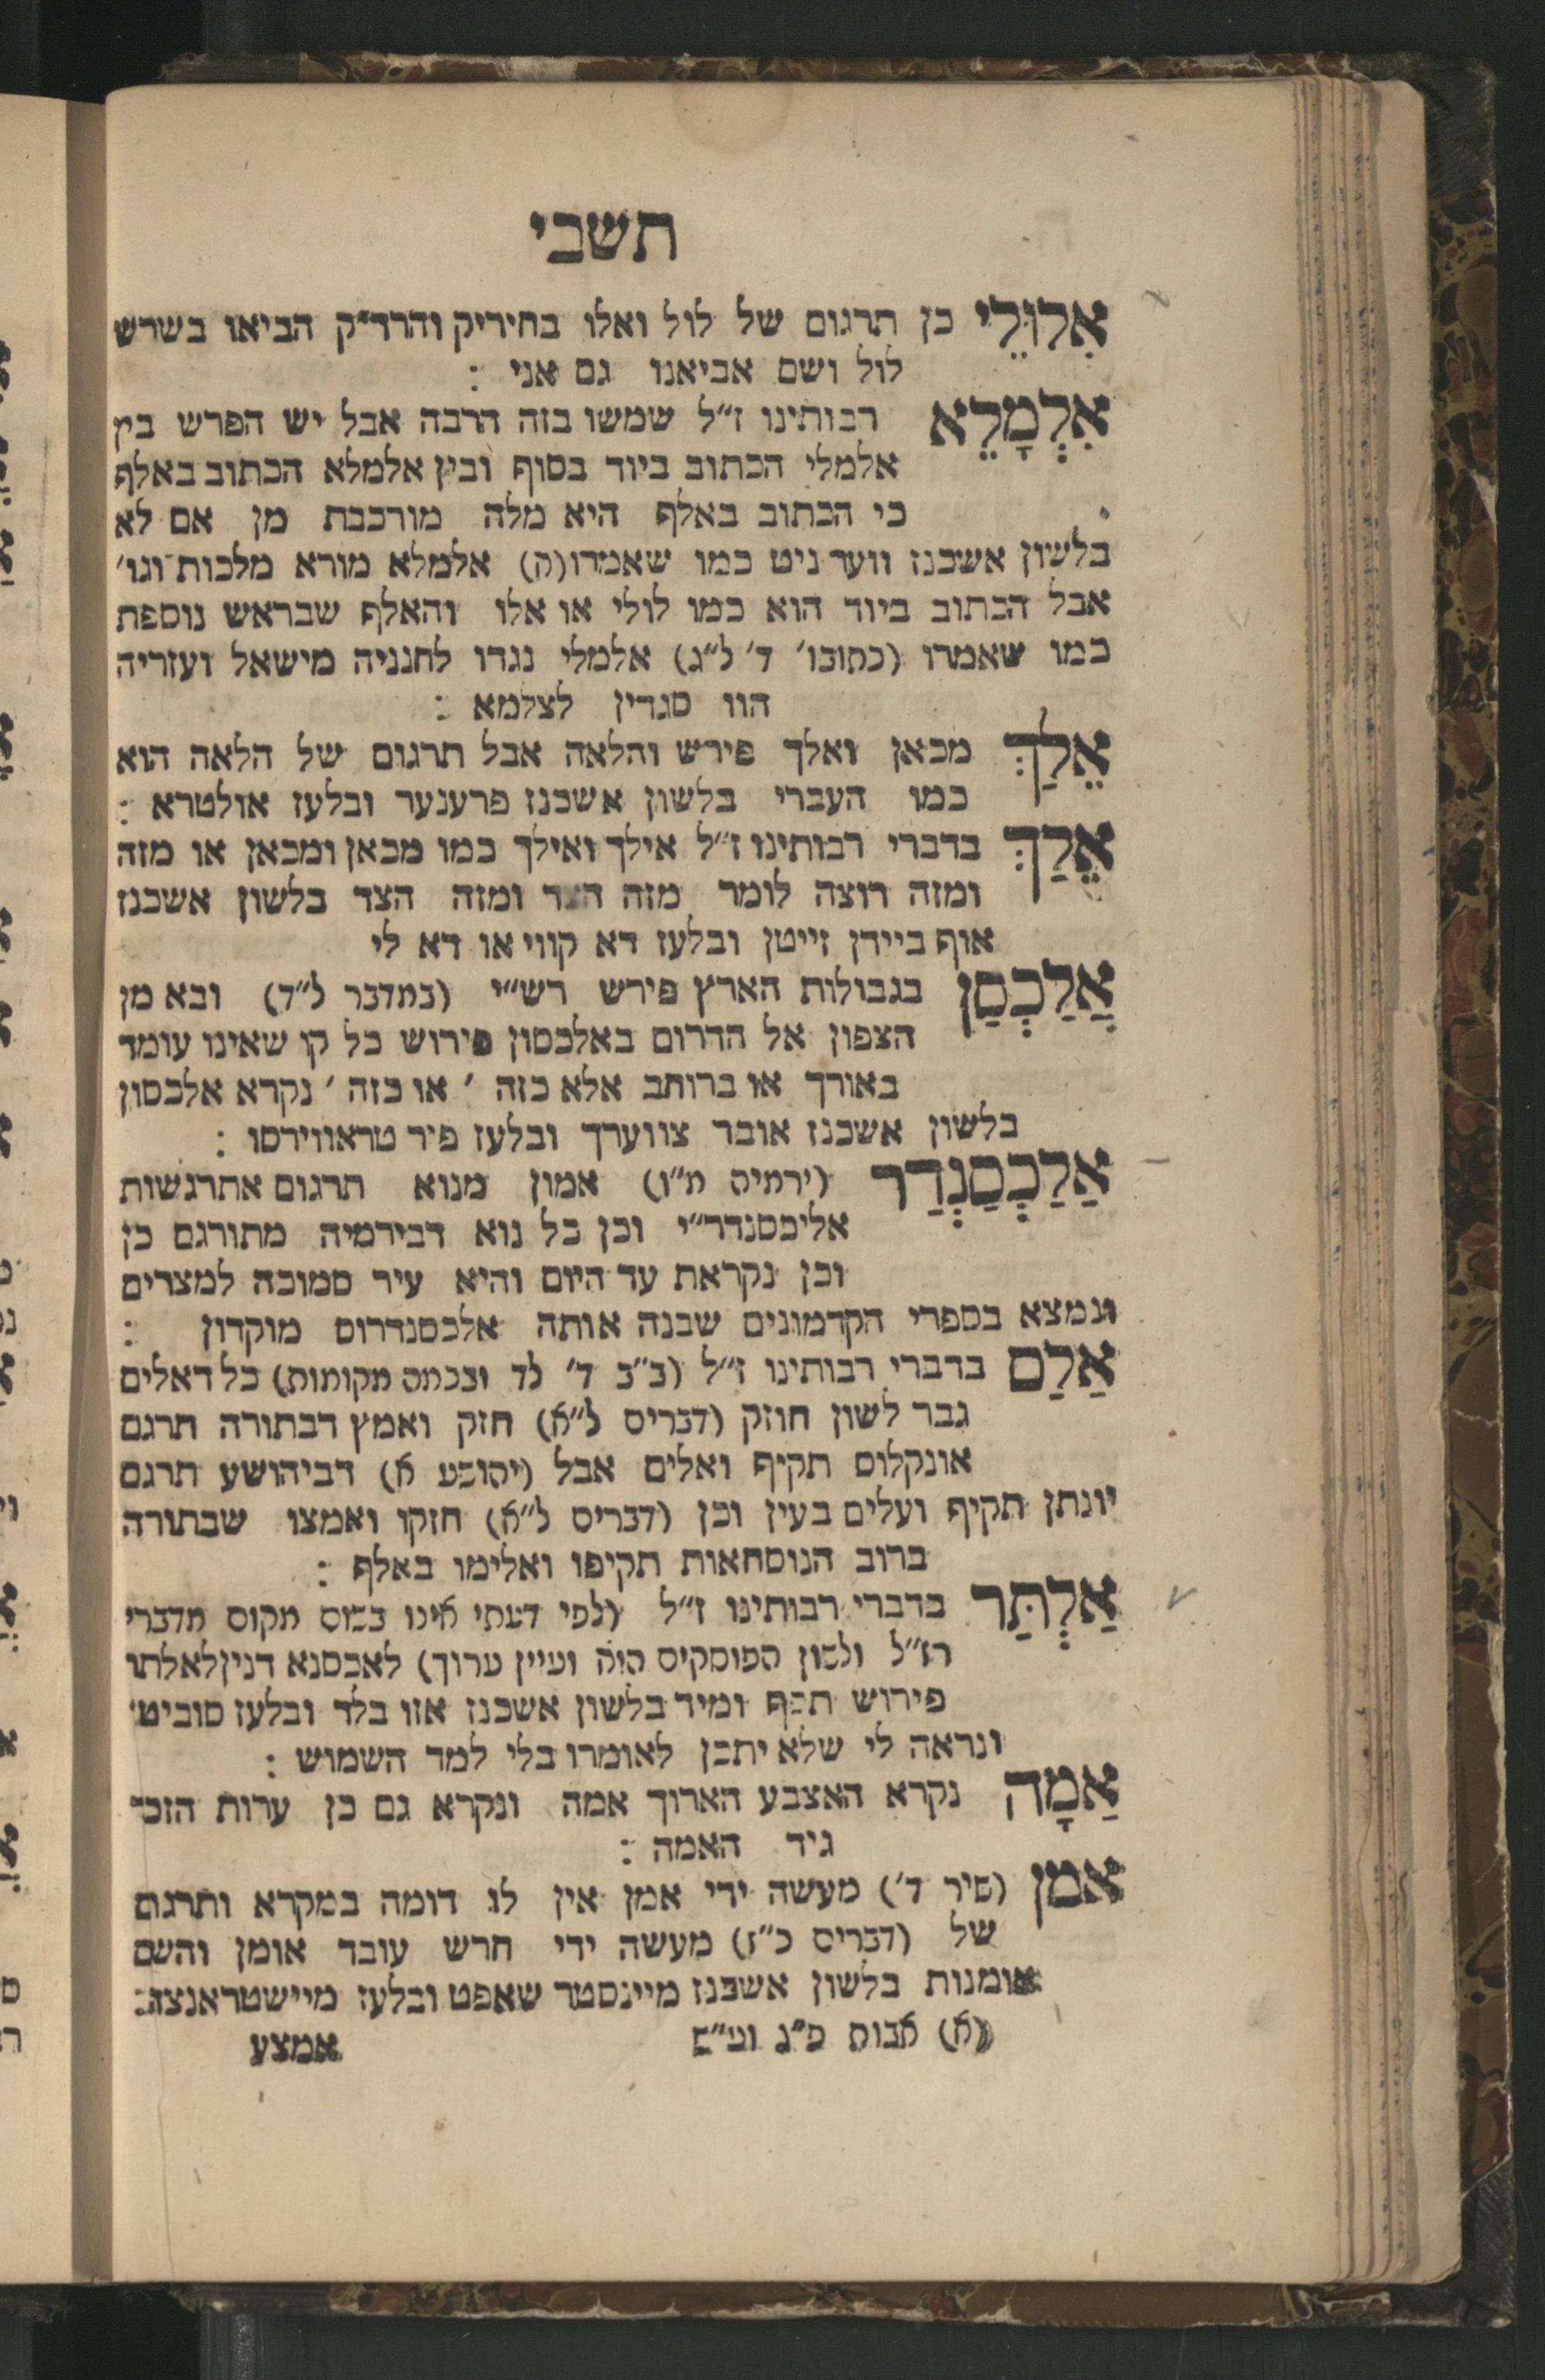 תשבי
אִלּוּלֵי כן תרגום של לול ואלו בחיריק והרד״ק הביאו בשרש
לול ושם אביאנו גם אני :
אִלְמָלֵא רבותינו ז״ל שמשו בזה הרבה אבל יש הפרש בין
אלמלי הכתוב ביוד בסוף ובין אלמלא הכתוב באלף
כי הכתוב באלף היא מלה מורכבת מן אם לא
בלשון אשכנז ווער ניט כמו שאמרו (א) אלמלא מורא מלכות וגו׳
אבל הכתוב ביוד הוא כמו לולי או אלו והאלף שבראש נוספת
כמו שאמרו (כתובו׳ ד׳ ל״ג) אלמלי נגדו לחנניה מישאל ועזריה
הוו סגדין לצלמא :
אֵלַךְ מכאן ואלך פירש והלאה אבל תרגום של הלאה הוא
כמו העברי בלשון אשכנז פרענער ובלעז אולטרא :
אֵלַךְ בדברי רבותינו ז״ל אילך ואילך כמו מכאן ומכאן או מזה
ומזה רוצה לומר מזה הצד ומזה הצד בלשון אשכנז
אוף ביידן זייטן ובלעז דא קווי או דא לי
אֲלַכְסַן בגבולות הארץ פירש רש״י (במדבר ל״ד) ובא מן
הצפון אל הדרום באלכסון פירוש כל קו שאינו עומד
באורך או ברוחב אלא כזה ׳ או כזה ׳ נקרא אלכסון
בלשון אשכנז אובר צווערך ובלעז פיר טראווירסו :
אַלַכְסַנְדַר (ירמיה מ״ו) אמון מנוא תרגום אתרגשות
אליכסנדר״י וכן כל נוא דבירמיה מתורגם כן
וכן נקראת עד היום והיא עיר סמוכה למצרים
ונמצא בספרי הקדמונים שבנה אותה אלכסנדרוס מוקדון :
אַלַם בדברי רבותינו ז״ל (ב״ב ד׳ לד ובכמה מקומות) כל דאלים
גבר לשון חוזק (דברים ל״א) חזק ואמץ דבתורה תרגם
אונקלוס תקיף ואלים אבל (יהושע א) דביהושע תרגם
יונתן תקיף ועלים בעין וכן (דברים ל״א) חזקו ואמצו שבתורה
ברוב הנוסחאות תקיפו ואלימו באלף :
אַלְתַּר בדברי רבותינו ז״ל (לפי דעתי אינו בשום מקום מדברי
רז״ל ולשון הפוסקים הוא ועיין ערוך) לאכסנא דנין לאלתר
פירוש תכף ומיד בלשון אשכנז אזו בלד ובלעז סוביטו
ונראה לי שלא יתכן לאומרו בלי למד השמוש :
אַמָה נקרא האצבע הארוך אמה ונקרא גם כן ערות הזכר
גיד האמה :
אמן (שיר ד׳) מעשה ידי אמן אין לו דומה במקרא ותרגום
של (דברים כ״ז) מעשה ידי חרש עובד אומן והשם
אומנות בלשון אשכנז מיינסטר שאפט ובלעז מיישטראנצה:
(א) אבות פ״ג וע״ש
אמצע